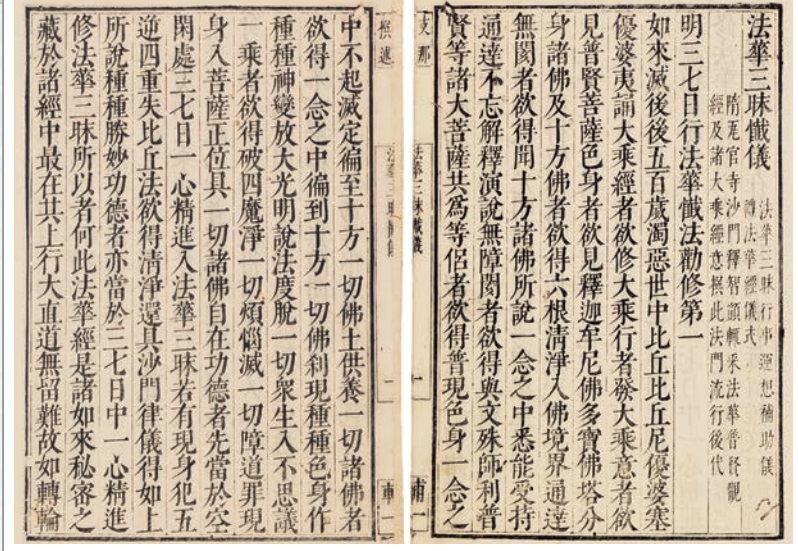 法華三昧懺儀
法華三昧行事運想補助儀
禮法華經儀式
隋瓦官寺沙門釋智顗輒采法華普賢觀
經及諸大乘經意撰此法門流行後代
明三七日行法華懺法勸修第一
如來滅後後五百歲濁惡世中比丘比丘尼優婆塞
優婆夷誦大乘經者欲修大乘行者發大乘意者欲
見普賢菩薩色身者欲見釋迦牟尼佛多寶佛塔分
身諸佛及十方佛者欲得六根清淨入佛境界通達
無閡者欲得聞十方諸佛所說一念之中悉能受持
通達不忘解釋演說無障閡者欲得與文殊師利普
賢等諸大菩薩共爲等侶者欲得普現色身一念之
支那
法華三昧懺儀
一
撰述
法華三昧懺儀
一
中不起滅定徧至十方一切佛土供養一切諸佛者
欲得一念之中徧到十方一切佛刹現種種色身作
種種神變放大光明說法度脫一切衆生入不思議
一乘者欲得破四魔淨一切煩惱滅一切障道罪現
身入菩薩正位具一切諸佛自在功德者先當於空
閑處三七日一心精進入法華三昧若有現身犯五
逆四重失比丘法欲得清淨還具沙門律儀得如上
所說種種勝妙功德者亦當於三七日中一心精進
修法華三昧所以者何此法華經是諸如來秘密之
藏於諸經中最在其上行大直道無留難故如轉輪